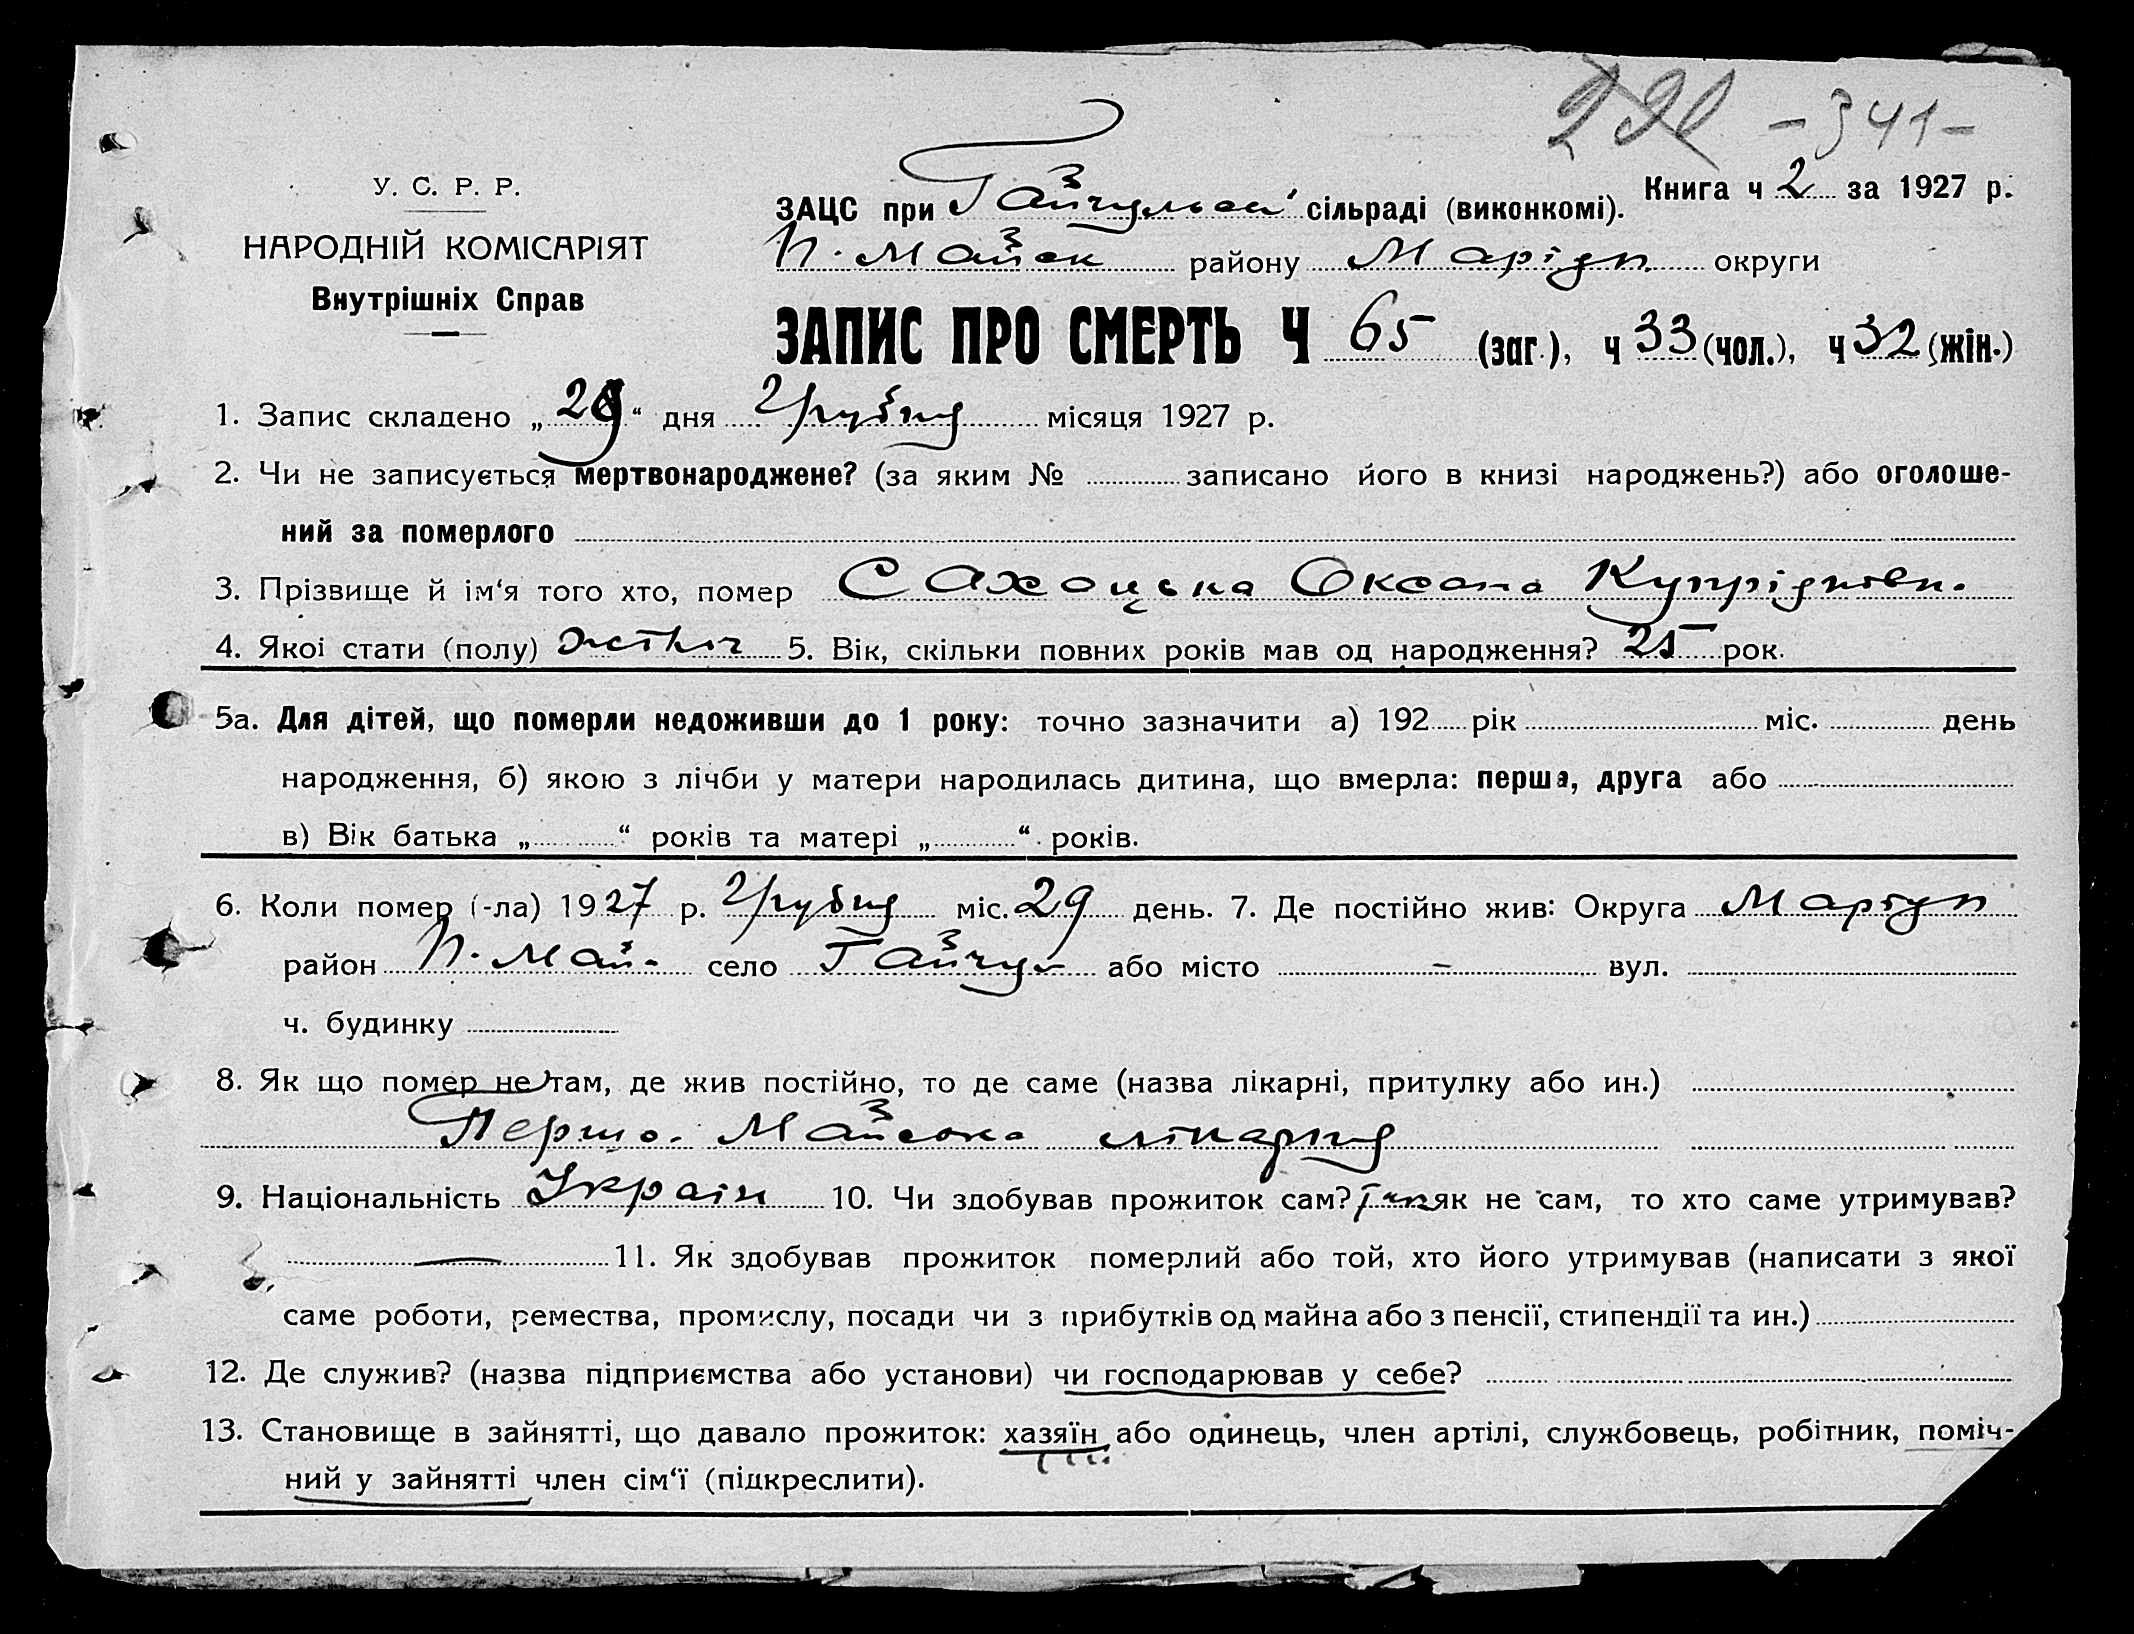 - 341 -
У. С. Р. Р.
НАРОДНІЙ КОМІСАРІЯТ
Внутрішніх Справ
Книга ч 2 за 1927 р.
ЗАЦС при Гайчульськ сільраді (виконкомі).
П. Майськ району Маріуп. округи
ЗАПИС ПРО СМЕРТЬ Ч 65 (заг.), ч 33 (чол.), ч 32 (жін.)
1. Запис складено „29“ дня Грудня місяця 1927 р.
2. Чи не записується мертвонароджене? (за яким № записано його в книзі народжень?) або оголоше-
ний за померлого
3. Прізвище й ім‘я того хто, помер Сахоцька Оксана Купріяновн.
4. Якої стати (полу) жіноч 5. Вік, скільки повних років мав од народження? 25 рок.
5а. Для дітей, що померли недоживши до 1 року: точно зазначити а) 192 рік міс. день
народження, б) якою з лічби у матери народилась дитина, що вмерла: перша, друга або
в) Вік батька „ “ років та матері „ “ років.
6. Коли помер (-ла) 1927 р. Грудня міс. 29 день. 7. Де постійно жив: Округа Маріуп
район П. Май- село Гайчул або місто - вул.
ч. будинку
8. Як що помер не там, де жив постійно, то де саме (назва лікарні, притулку або ин.)
Першо-Майська лікарня
9. Національність Україн 10. Чи здобував прожиток сам? як не сам, то хто саме утримував?
— 11. Як здобував прожиток померлий або той, хто його утримував (написати з якої
саме роботи, ремества, промислу, посади чи з прибутків од майна або з пенсії, стипендії та ин.)
12. Де служив? (назва підприємства або установи) чи господарював у себе?
13. Становище в зайнятті, що давало прожиток: хазяїн або одинець, член артілі, службовець, робітник, поміч-
ний у зайнятті член сім‘ї (підкреслити).